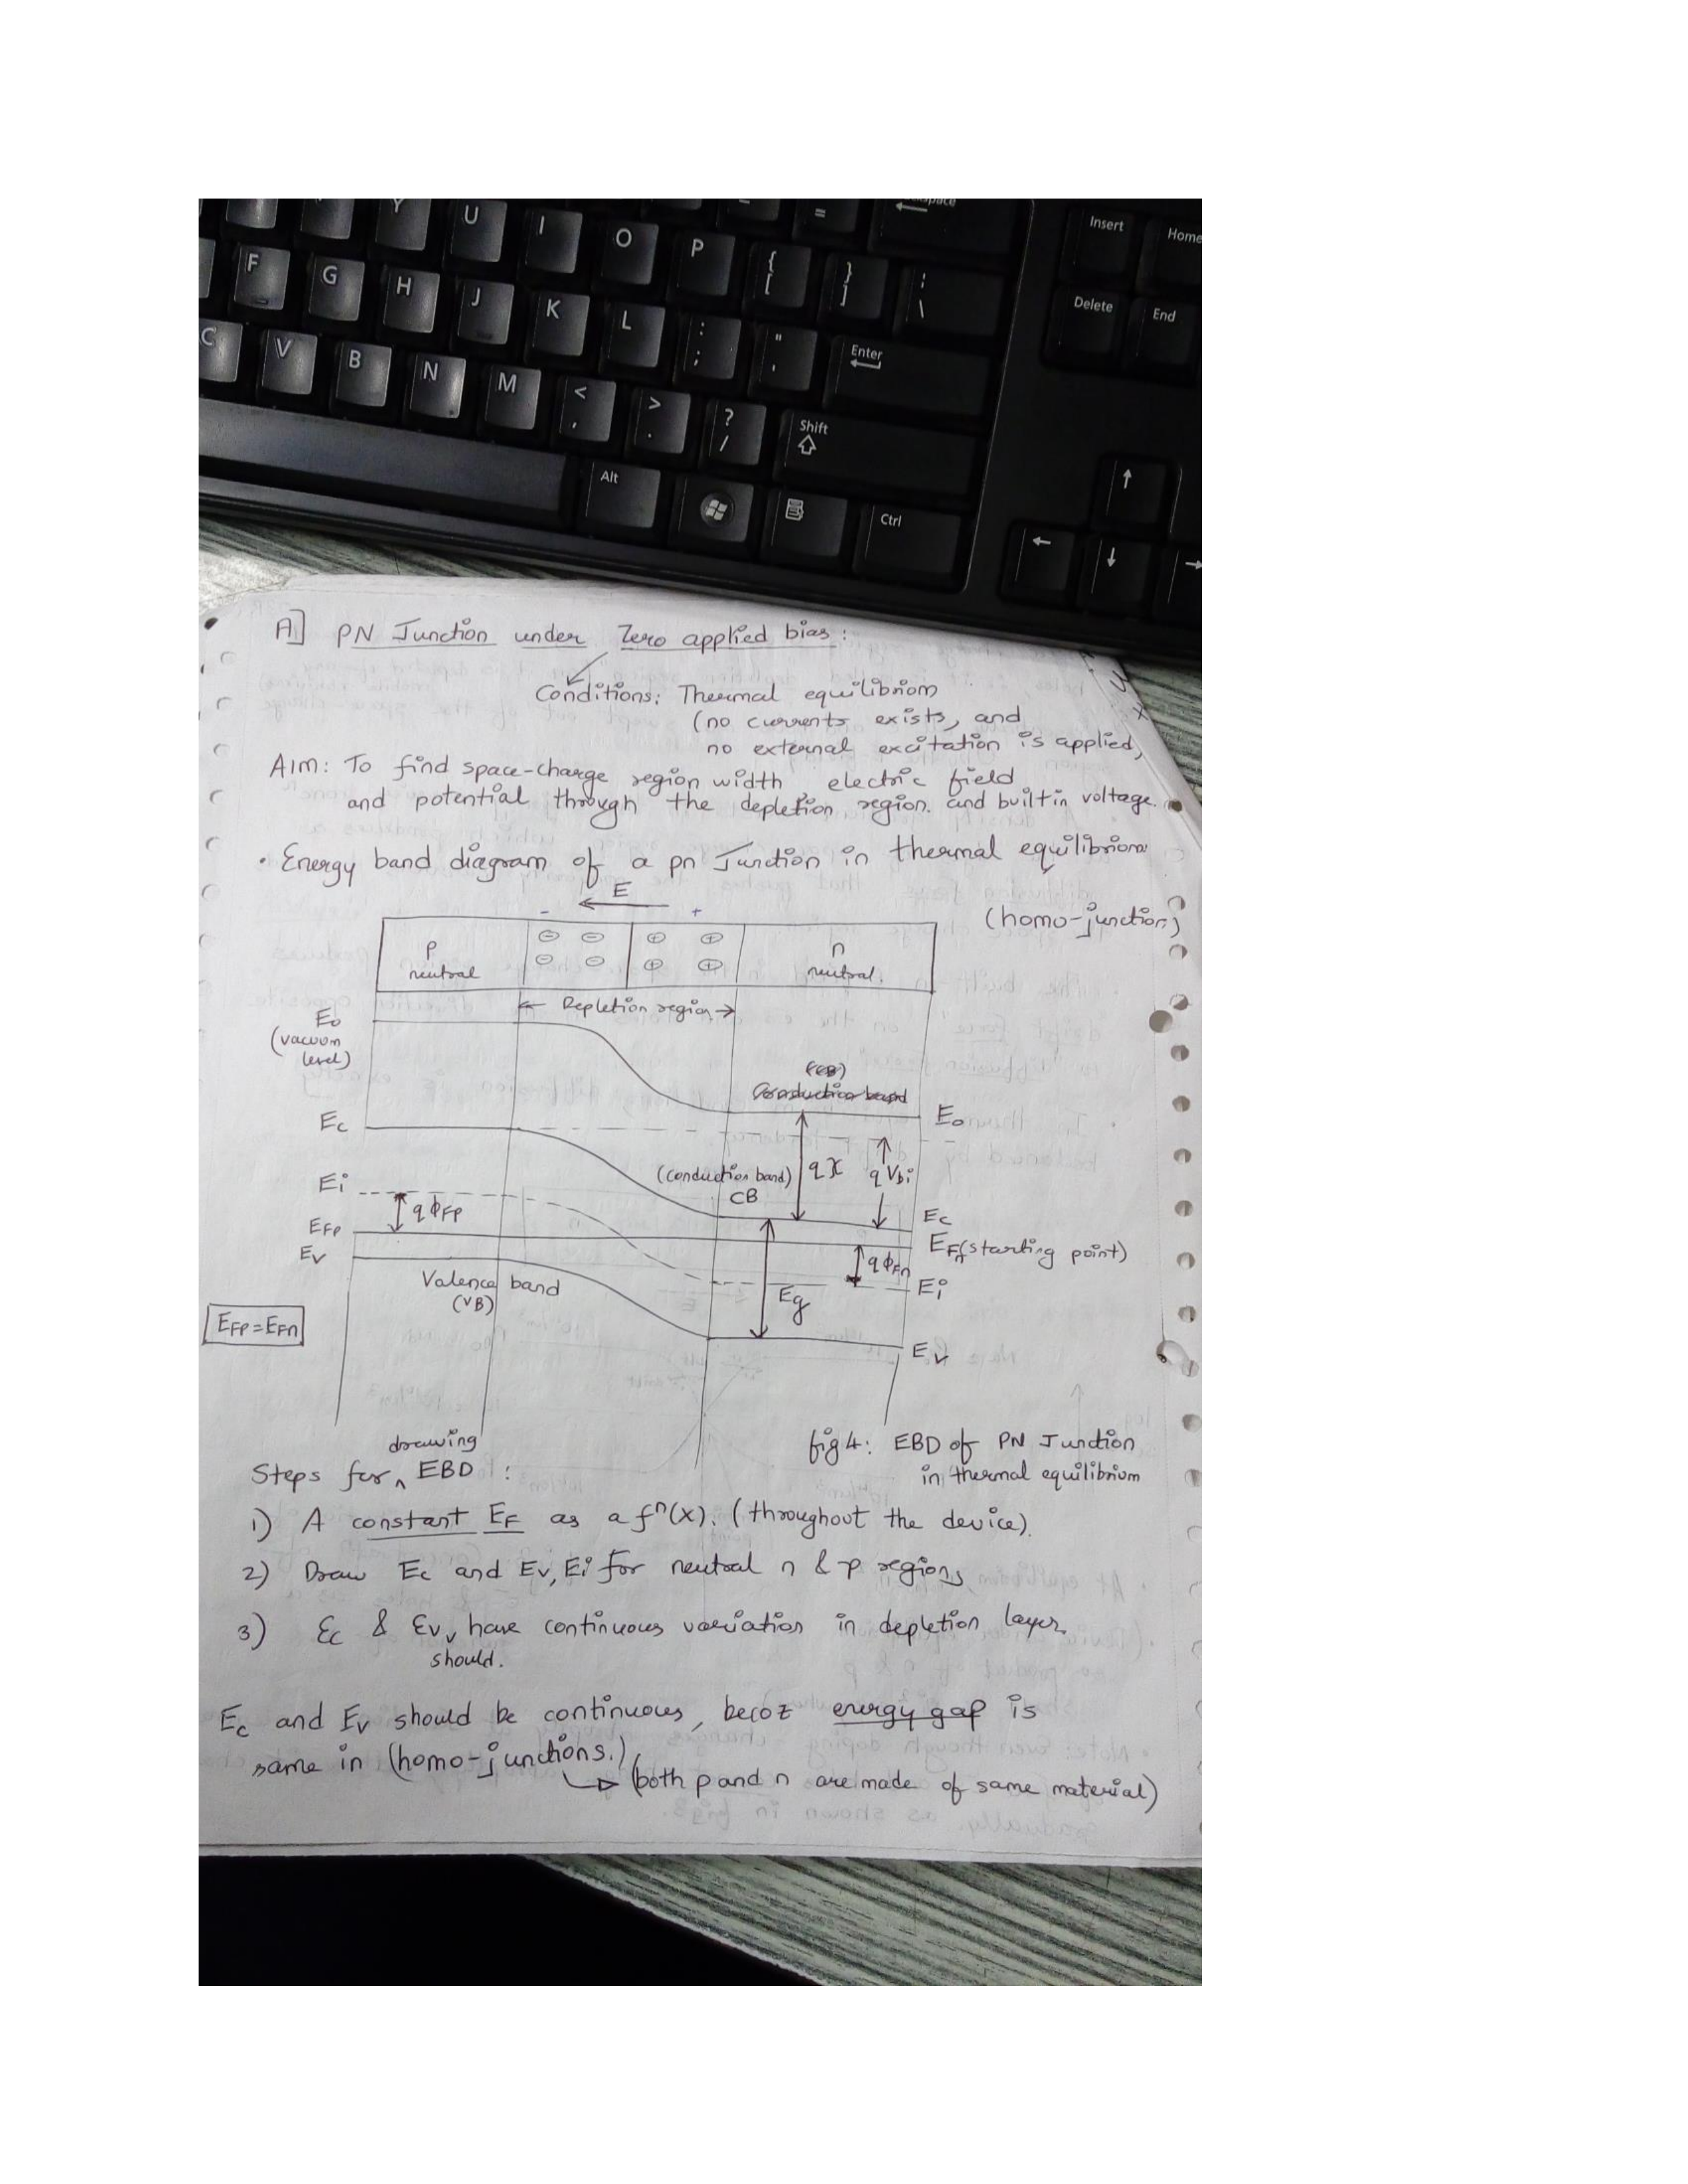 Y U I O P { [ } ] = Insert Home
F G H J K L : ; " ' Enter Delete End
C V B N M < , > . ? / Shift
Alt Ctrl
A] PN Junction under Zero applied bias:
Conditions: Thermal equilibriom
(no currents exists, and
no external excitation is applied)
AIM: To find space-charge region width, electric field
and potential through the depletion region. and built in voltage.
• Energy band diagram of a pn Junction in thermal equilibriom:
(homo-junction)
E
- +
p n
neutral neutral.
← Depletion region →
Eo
(vacuum
level)
(CB)
Conduction band
Eo
Ec
(conduction band) qχ qVbi
CB
Ei
qΦFp
Ec
EFp
EFn (starting point)
Ev
qΦFn
Ei
Valence band
(VB)
Eg
EFP = EFn
Ev
fig 4: EBD of PN Junction
in thermal equilibriom
drawing
Steps for ^ EBD :
1) A constant EF as a fⁿ(x). (throughout the device).
2) Draw Ec and Ev, Ei for neutral n & p regions
3) Ec & Ev, have continuous variation in depletion layer.
should.
Ec and Ev should be continuous, becoz energy gap is
same in (homo-junctions.)
(both p and n are made of same material)